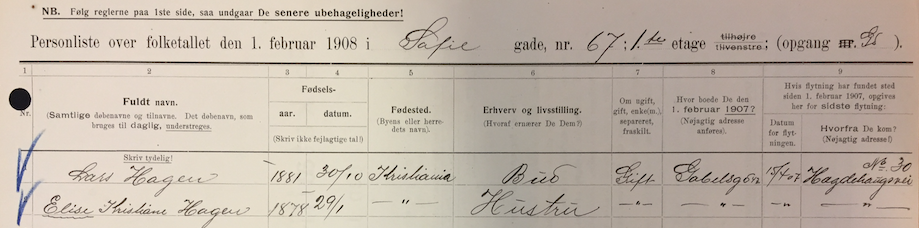 NB. Følg reglerne paa 1ste side, saa undgaar De senere ubehageligheder!
Personliste over folketallet den 1. februar 1908 i Sofie gade, nr. 67 : 1.ste etage tilhøjre tilvenstre; (opgang nr. Gs ).
1 2 3 4 5 6 7 8 9
Nr. Fuldt navn. (Samtlige døbenavne og tilnavne. Det døbenavn, som bruges til daglig, understreges. Skriv tydelig!
Fødsels- aar. datum. (Skriv ikke fejlagtige tal!)
Fødested. (Byens eller herredets navn).
Erhverv og livsstilling. (Hvoraf ernærer De Dem?)
Om ugift, gift, enke(m.), separeret, fraskilt.
Hvor boede De den 1. februar 1907? (Nøjagtig adresse anføres).
Hvis flytning har fundet sted siden 1. februar 1907, opgives her for sidste flytning:
Datum for flytningen. Hvorfra De kom? (Nøjagtig adresse!)
Lars Hagen 1881 30/10 Kristiania Bud Gift Gabelsgdn 15/4-07 No. 30
Elise Kristiane Hagen 1878 29/1 — " — Hustru — " — — " — — " — — " —